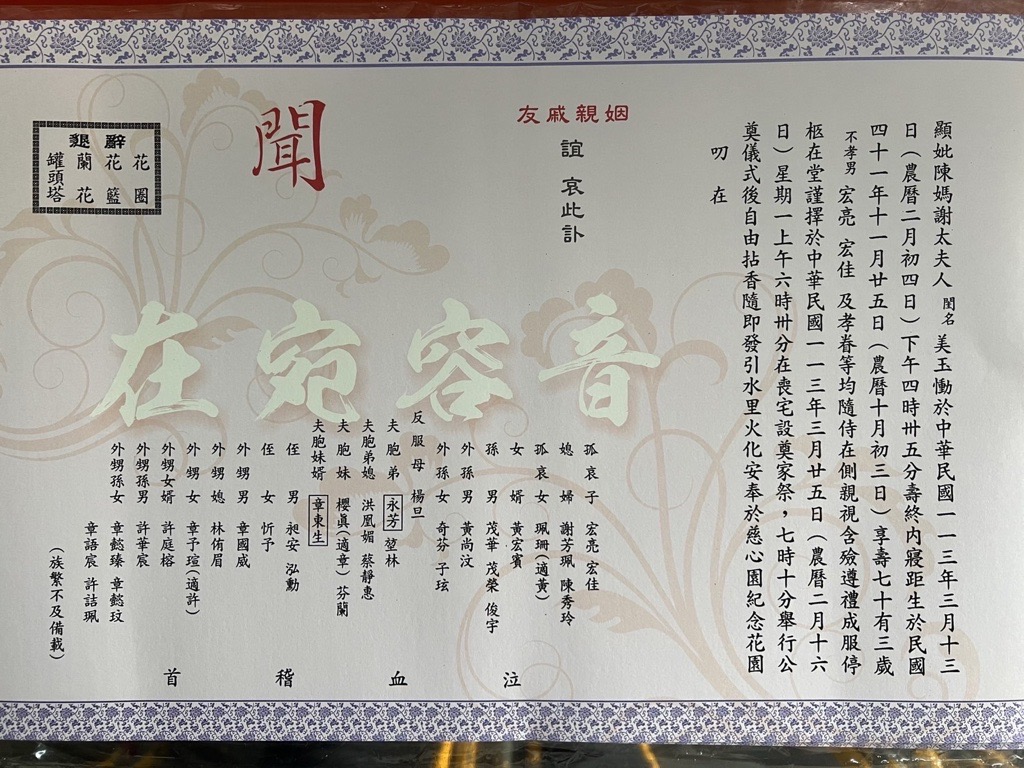 顯妣陳媽謝太夫人 閨名 美玉慟於中華民國一一三年三月十三
日（農曆二月初四日）下午四時卅五分壽終內寢距生於民國
四十一年十一月廿五日（農曆十月初三日）享壽七十有三歲
不孝男 宏亮 宏佳 及孝眷等均隨侍在側親視含殮遵禮成服停
柩在堂謹擇於中華民國一一三年三月廿五日（農曆二月十六
日）星期一上午六時卅分在喪宅設奠家祭，七時十分舉行公
奠儀式後自由拈香隨即發引水里火化安奉於慈心園紀念花園
叨在
姻親戚友
誼 哀此訃
聞
懇辭
花圈
花籃
蘭花
罐頭塔
音容宛在
孤哀子 宏亮 宏佳
媳婦 謝芳珮 陳秀玲
孤哀女 珮珊（適黃）
女婿 黃宏賓
孫男 茂華 茂榮 俊宇
外孫男 黃尚汶
外孫女 奇芬 子玹
反服母 楊旦
夫胞弟 永芳 堃林
夫胞弟媳 洪凰媚 蔡靜惠
夫胞妹 櫻眞（適章） 芬蘭
夫胞妹婿 章東生
侄男 昶安 泓勳
侄女 忻予
外甥男 章國威
外甥媳 林侑眉
外甥女 章予瑄（適許）
外甥女婿 許庭榕
外甥孫男 許華宸
外甥孫女 章懿臻 章懿玟
章語宸 許詰珮
（族繁不及備載）
泣血稽首